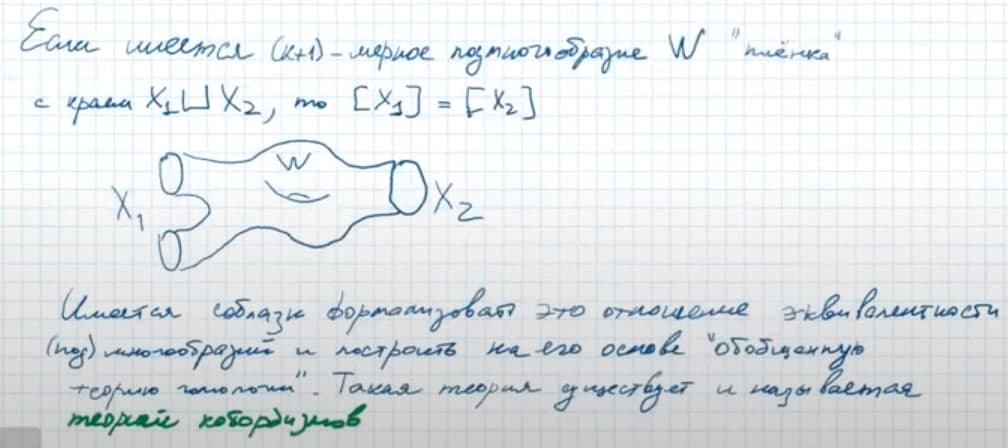 Если имеется (k+1)-мерное подмногообразие W "плёнка"
с краем X₁⊔X₂, то [X₁] = [X₂]
W
X₁
X₂
Имеется соблазн формализовать это отношение эквивалентности
(под)многообразий и построить на его основе "обобщенную
теорию гомологий". Такая теория существует и называется
теорией кобордизмов